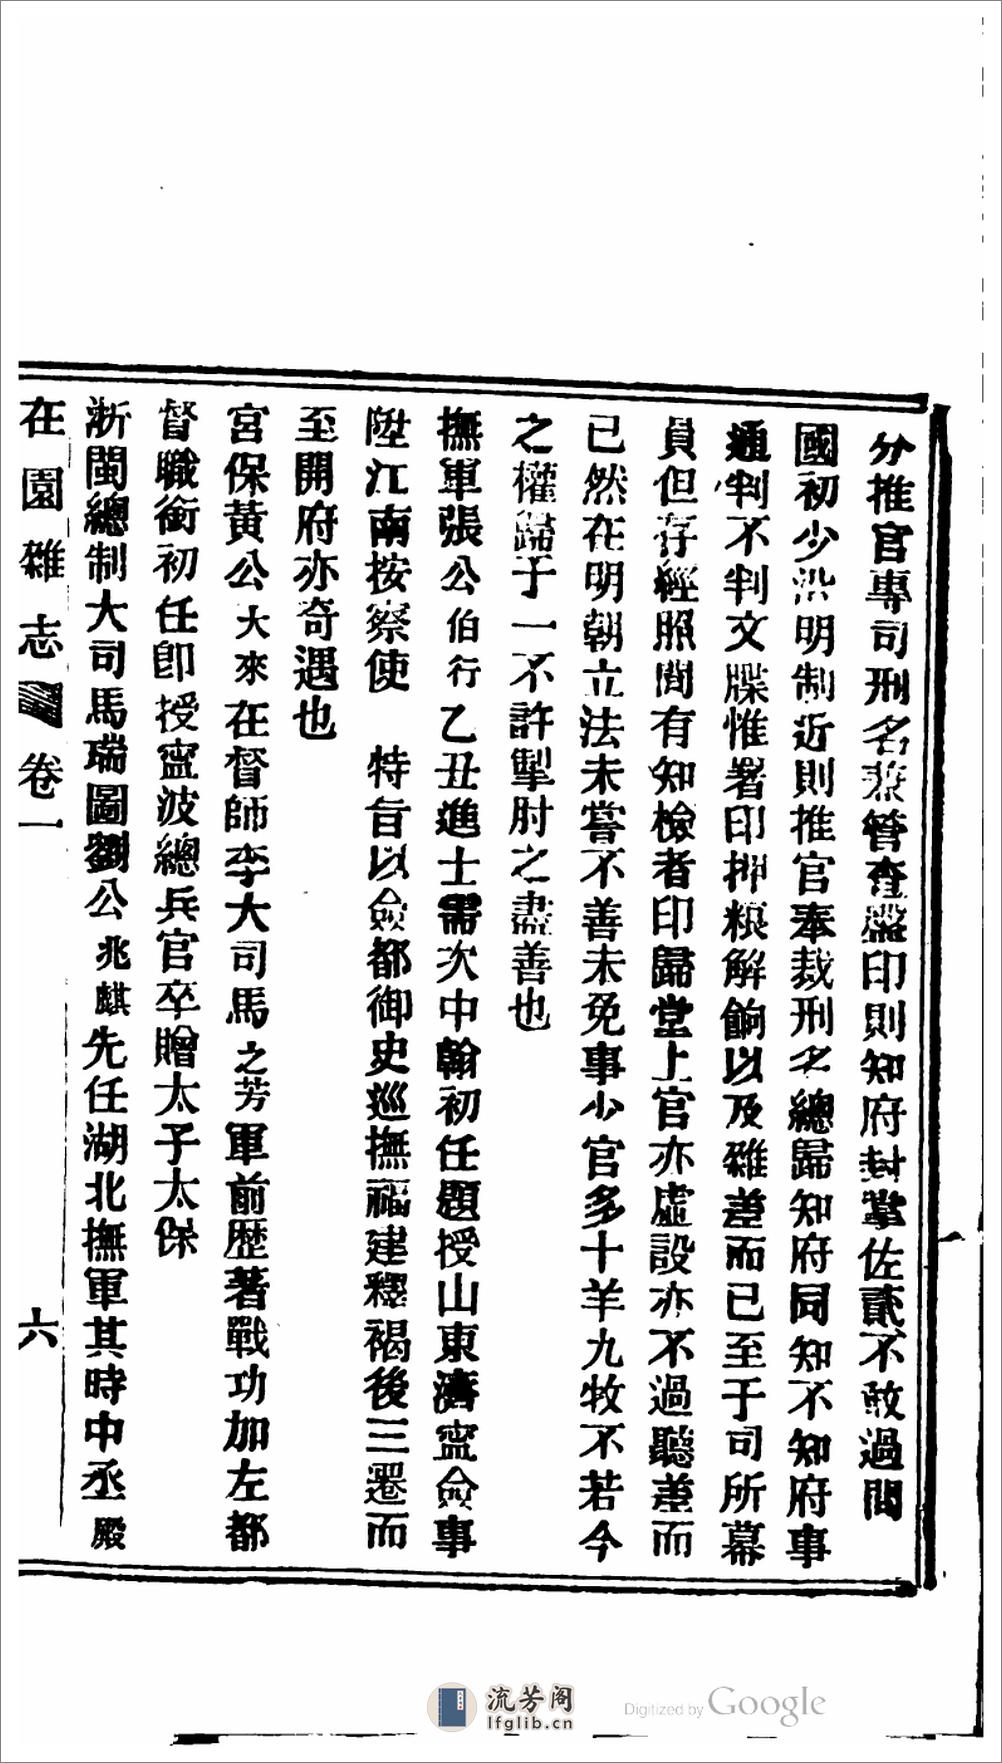 分推官專司刑名兼管查盤印則知府封掌佐貳不敢過問
國初少沿明制近則推官奉裁刑名總歸知府同知不知府事
通判不判文牒惟署印押粮解餉以及雜差而已至于司所幕
員但存經照間有知檢者印歸堂上官亦虛設亦不過聽差而
已然在明朝立法未嘗不善未免事少官多十羊九牧不若今
之權歸于一不許掣肘之盡善也
撫軍張公伯行乙丑進士需次中翰初任題授山東濟寧僉事
陞江南按察使　特旨以僉都御史巡撫福建釋褐後三遷而
至開府亦奇遇也
宮保黃公大來在督師李大司馬之芳軍前歷著戰功加左都
督職銜初任卽授寧波總兵官卒贈太子太保
浙閩總制大司馬瑞圖劉公兆麒先任湖北撫軍其時中丞殿
在園雜志　卷一　六
流芳阁
lfglib.cn
Digitized by Google